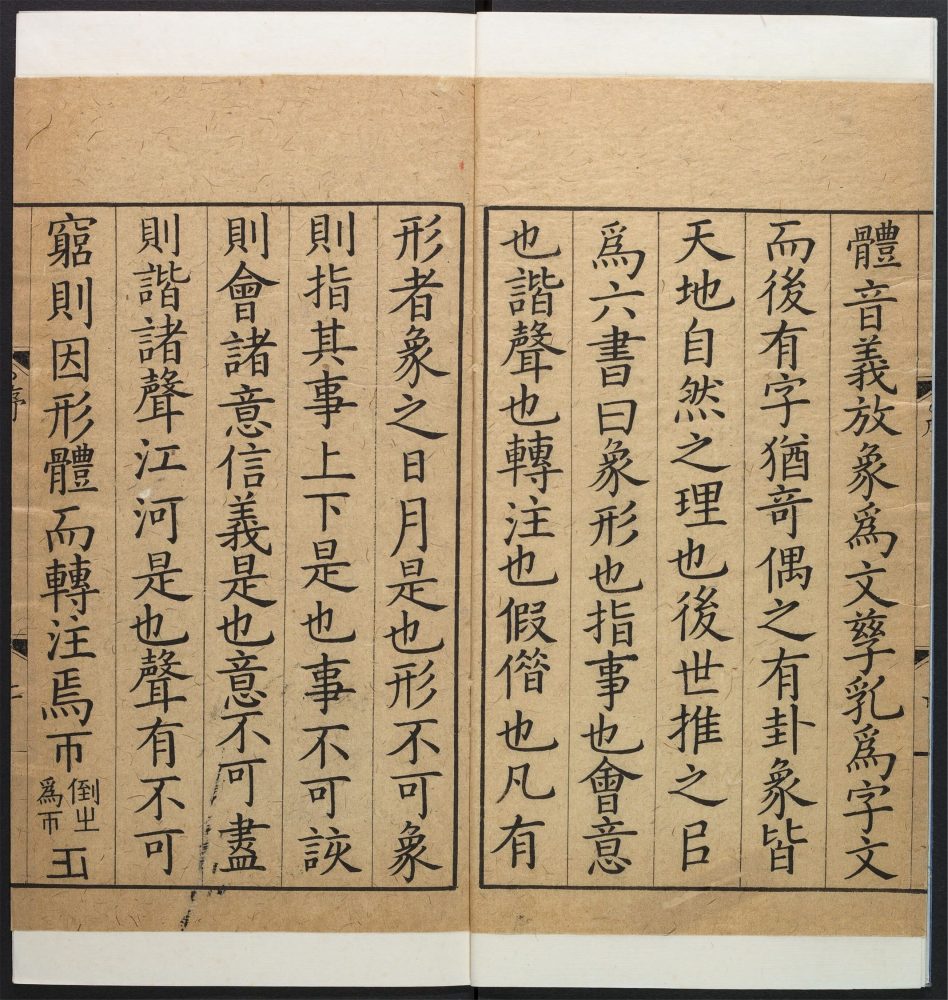 體音義放象爲文孳乳爲字文
而後有字猶竒偶之有卦象皆
天地自然之理也後世推之㠯
爲六書曰象形也指事也會意
也諧聲也轉注也假偺也凡有
形者象之日月是也形不可象
則指其事上下是也事不可該
則會諸意信義是也意不可盡
則諧諸聲江河是也聲有不可
窮則因形體而轉注焉帀
倒㞢
爲帀
序